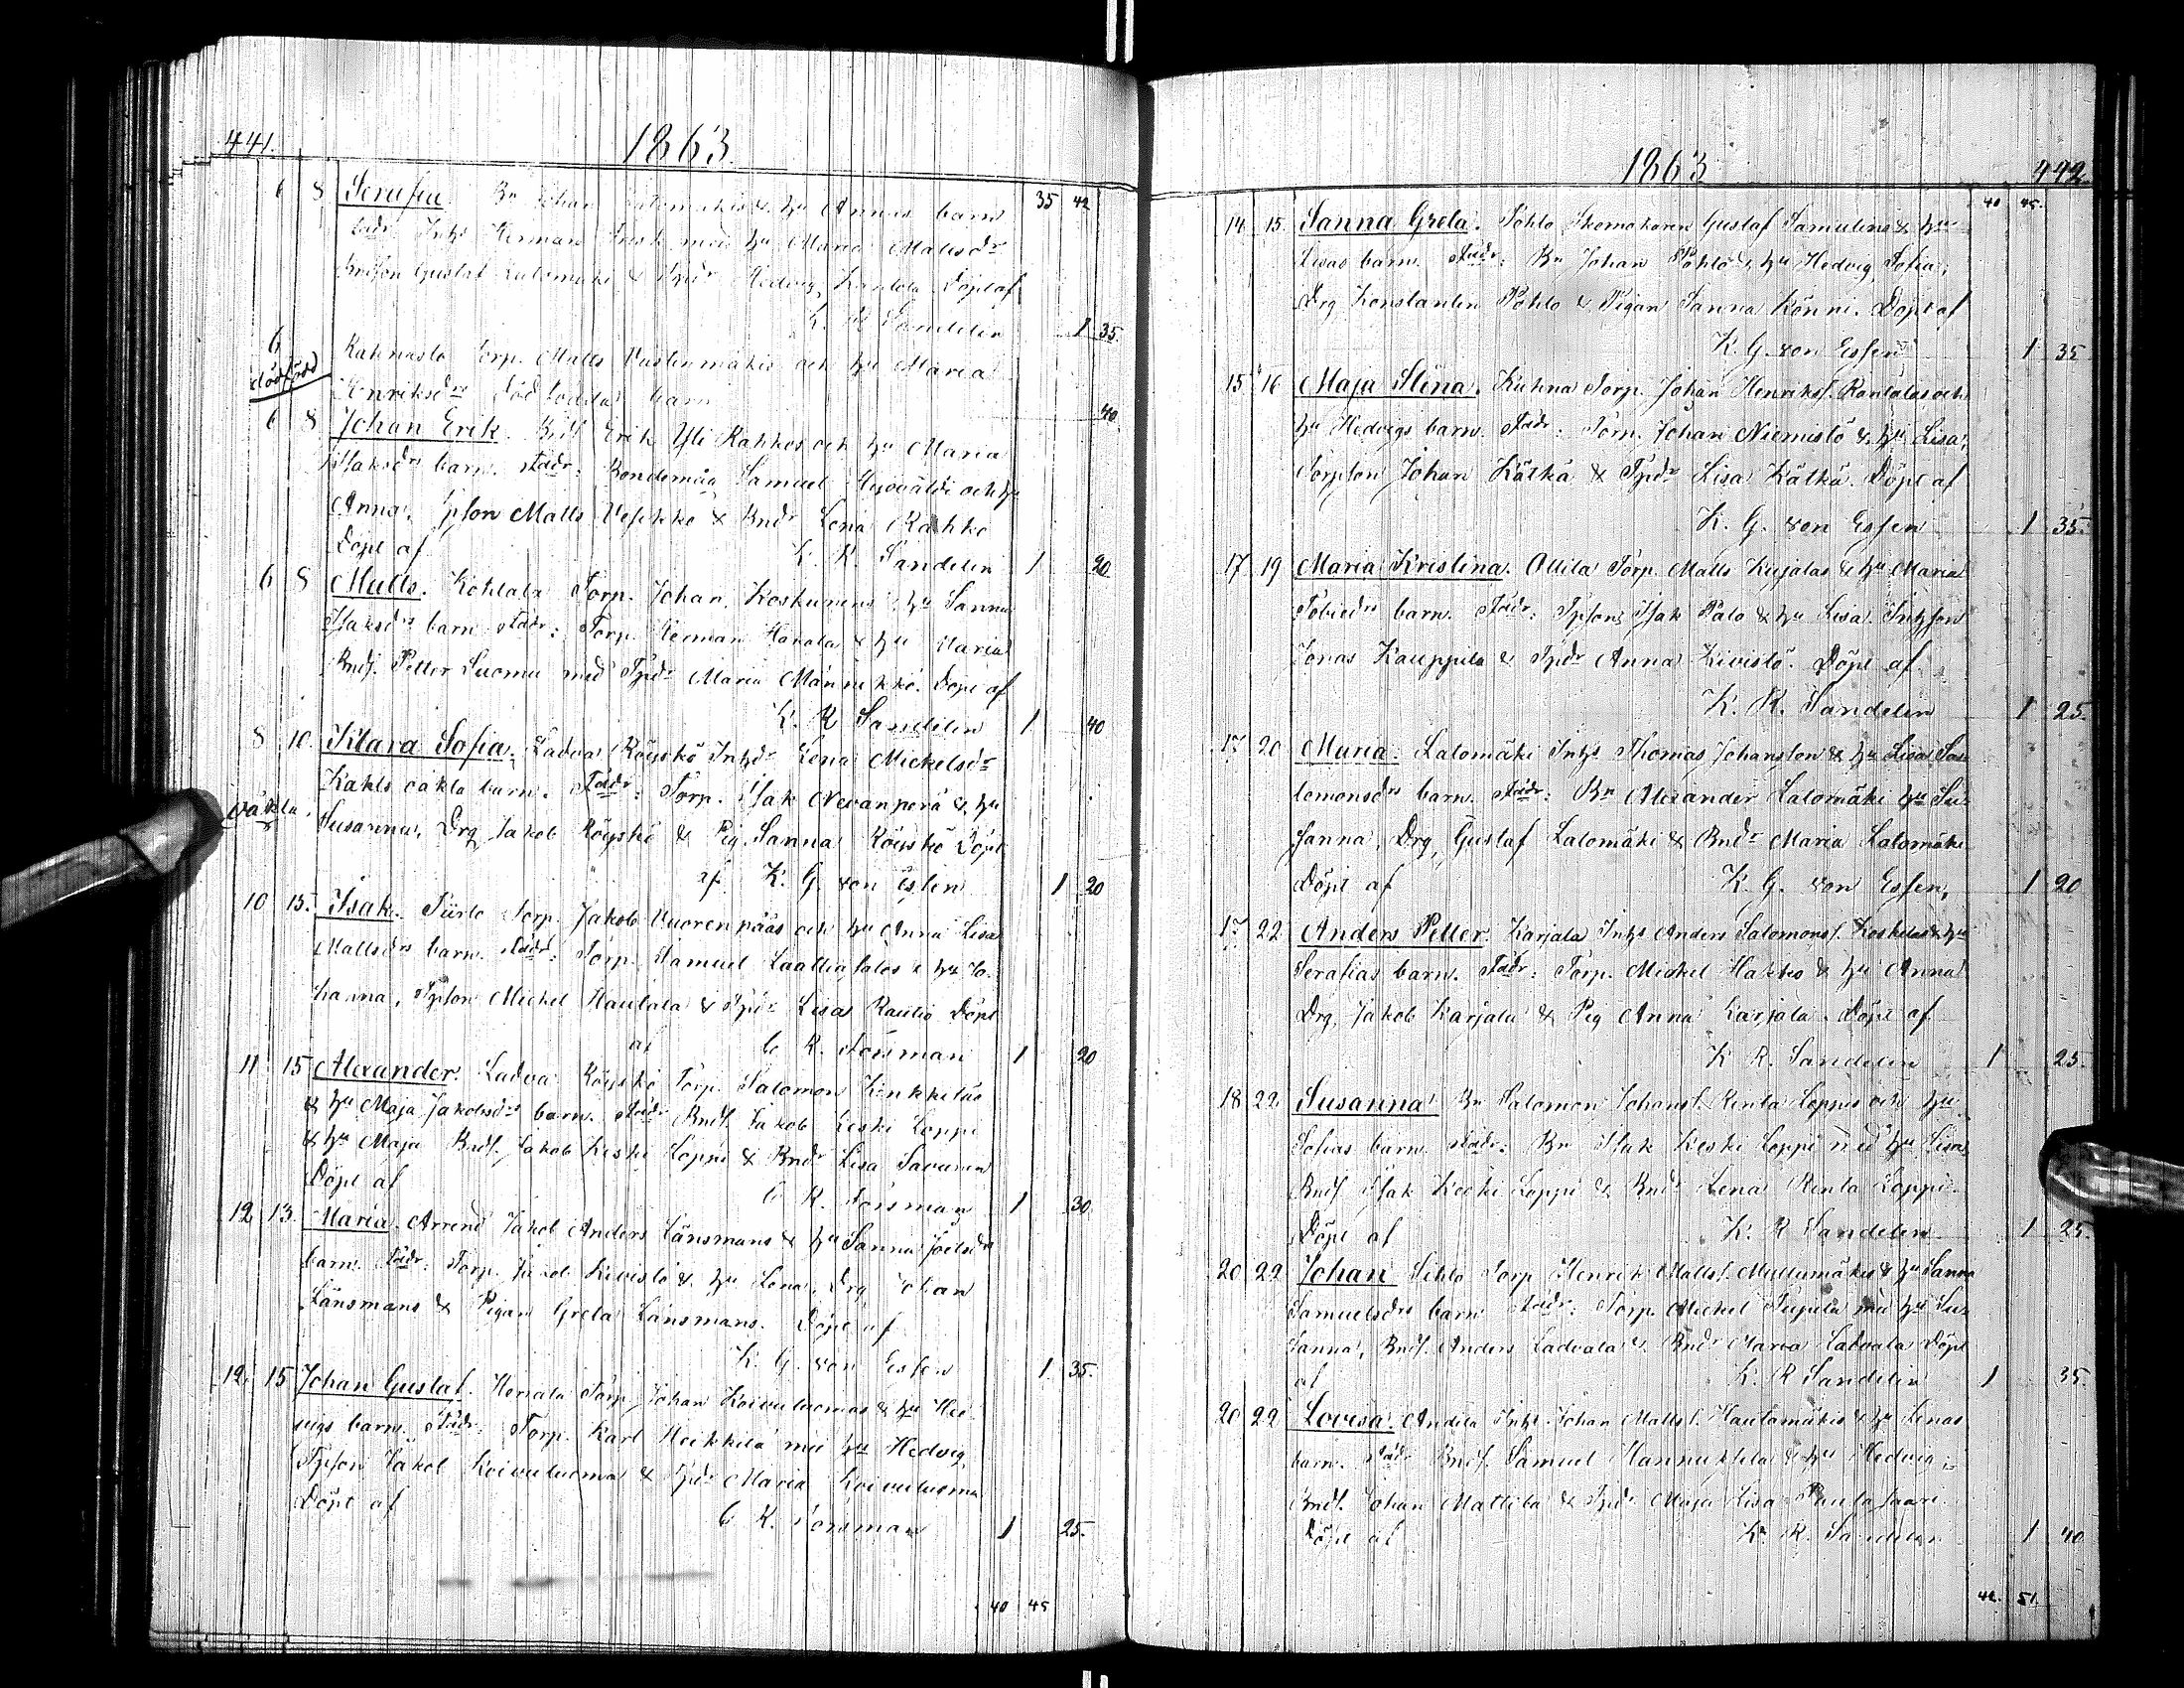 441.
1863.
35 42
6 8 Serafia. Bn Johan Salomäkis & hu Annas barn
Fadr. Inhs Herman med hu Maria Mattsdr
Bndson Gustaf Salomäki & Hedvig Döpt af
K. R. Sandelin 1 35.
6 Kahnasto Torp. Matts och hu Maria
dödfödd
Henriksdrs dödfödda barn 40.
6 8 Johan Erik. Erik Yli Rahkos och hu Maria
Isaksdrs barn. Fadr: Bondemåg Samuel och hu
Anna, Tpson Matts Vesikko & Bndr Lena Rahko
Döpt af K. R. Sandelin 1 20
6 8 Matts. Kohtala Torp. Johan Koskunens & hu Sanna
Isaksdrs barn. Fadr: Torp. Herman Hanala & hu Maria
Bnds. Petter Suomu med Tpdr Maria Männikkö. Döpt af
K. R. Sandelin 1 40
8 10. Klara Sofia. Ladva Röyskö Inhdr Lena Mickelsdr
Kahls oäkta barn. Fadr: Torp. Isak Nevanperä & hu
oäkta.
Susanna, Drg Jakob Röyskö & Pig. Sanna Röyskö Döpt
af K. G. von Essen 1 20
10 15. Isak. Torp. Jakob Vuorenpääs och hu Anna Lisa
Mattsdrs barn. Fadr: Torp. Samuel & hu Jo-
hanna, Tpson Michel Hautala & Tpdr Lisa Rautio Döpt
af C. R. Forsman 1 20
11 15 Alexander. Ladva Röyskö Torp. Salomon Kinkkeläs
& hu Maja Jakobsdrs barn. Fadr Bnds. Jakob Keski Loppi
& hu Maja Bnds. Jakob Keski Loppi & Bndr Lisa Savunen
Döpt af C. R. Forsman 1 30.
12 13. Maria. Arrend Jakob Anders Länsmans & hu Sanna Joelsdrs
barn. Fadr: Torp. Jakob Kivistö & hu Lena, Drg Johan
Länsmans & Pigan Greta Länsmans. Döpt af
K. G. von Essen 1 35.
12. 15 Johan Gustaf. Torp. Johan Koivuluomas & hu Hed-
vigs barn. Fadr: Torp. Karl Heikkilä med hu Hedvig,
Tpson Jakob Koivuluoma & Tpdr Maria Koivuluoma
Döpt af C. R. Forsman 1 25.
40 45
1863 442.
40 45.
14 15. Sanna Greta. Pohto Skomakaren Gustaf Samulins & hu
Lisas barn. Fadr: Bn Johan Pohto & hu Hedvig Sofia;
Drg Konstantin Pohto & Pigan Sanna Könni. Döpt af
K. G. von Essen 1 35
15 16 Maja Stina. Kuhna Torp. Johan Henrikss. Rantalas och
hu Hedvigs barn. Fadr: Torp. Johan Niemistö & hu Lisa,
Torpson Johan Kätkä & Tpdr Lisa Kätkä. Döpt af
K. G. von Essen 1 35.
17 19 Maria Kristina. Ollila Torp. Matts Kujalas & hu Maria
Tobiedrs barn. Fadr: Tpson Isak Palo & hu Lisa. Inhson
Jonas Kauppila & Tpdr Anna Kivistö. Döpt af
K. R. Sandelin 1 25.
17 20 Maria. Salomäki Inhs Thomas Johansson & hu Lisa Sa-
lomonsdrs barn. Fadr: Bn Alexander Salomäki hu Su-
sanna, Drg, Gustaf Salomäki & Bndr Maria Salomäki
Döpt af K. G. von Essen, 1 20
17 22 Anders Petter. Karjala Inhs Anders Salomons. Koskelas & hu
Serafias barn. Fadr: Torp. Mickel Hakko & hu Anna
Drg, Jakob Karjala & Pig Anna Karjala. Döpt af
K R. Sandelin 1 25.
18 22 Susanna Bn Salomon Johans. Renta Loppis och hu
Sofias barn. Fadr: Bn Isak Keski Loppi med hu Lisa,
Bnds. Isak Keski Loppi & Bndr Lena Renta Loppi.
Döpt af K. R Sandelin 1 25.
20 22 Johan Torp Henrik Mattss. Myllymäkis & hu Sanna
Samuelsdrs barn Fadr: Torp. Mickel med hu Su-
sanna, Bnds. Anders Ladvala & Bndr Maria Ladvala Döpt
af K. R Sandelin 1 35.
20 22 Lovisa. Andila Inhs Johan Mattss. Hautamäkis & hu Lenas
barn. Fadr Bnds. Samuel Hannuksela & hu Hedvig;
Bnds. Johan Mattila & Tpdr Maja Lisa
Döpt af K. R. Sandelin 1 40
42. 51.